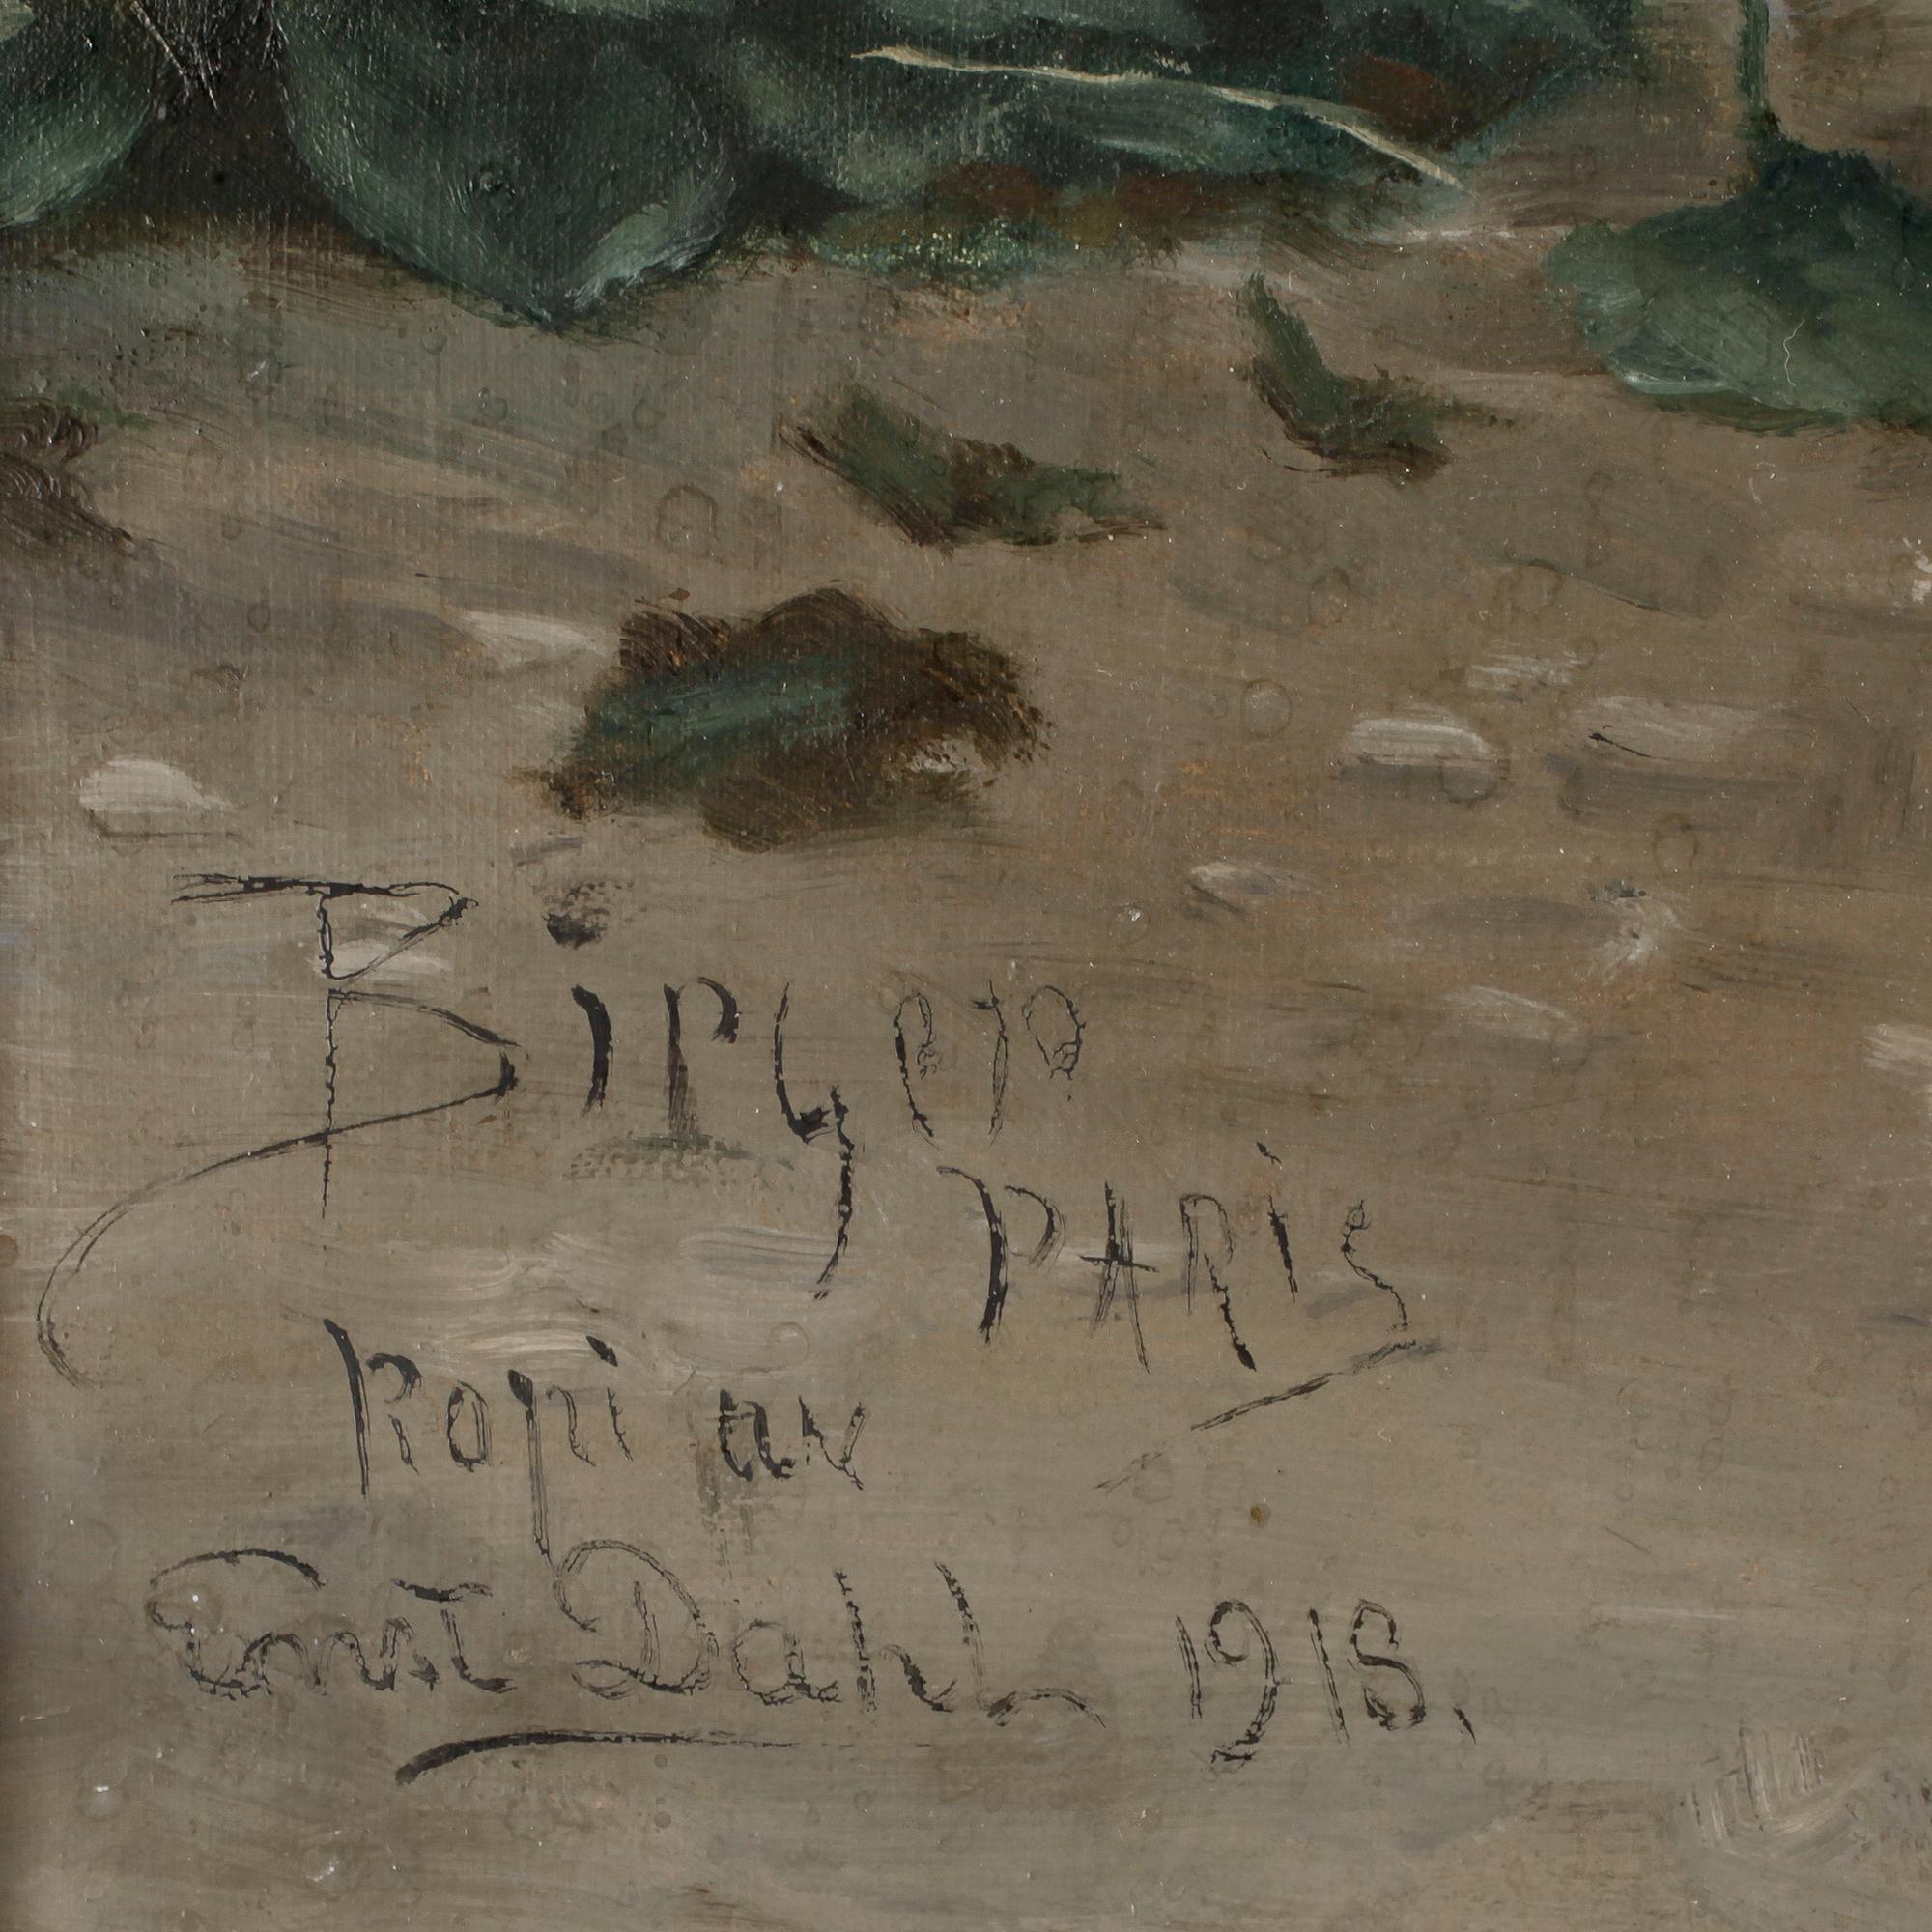 Birger
PARis
Kopi av
Ernst Dahl 1918.